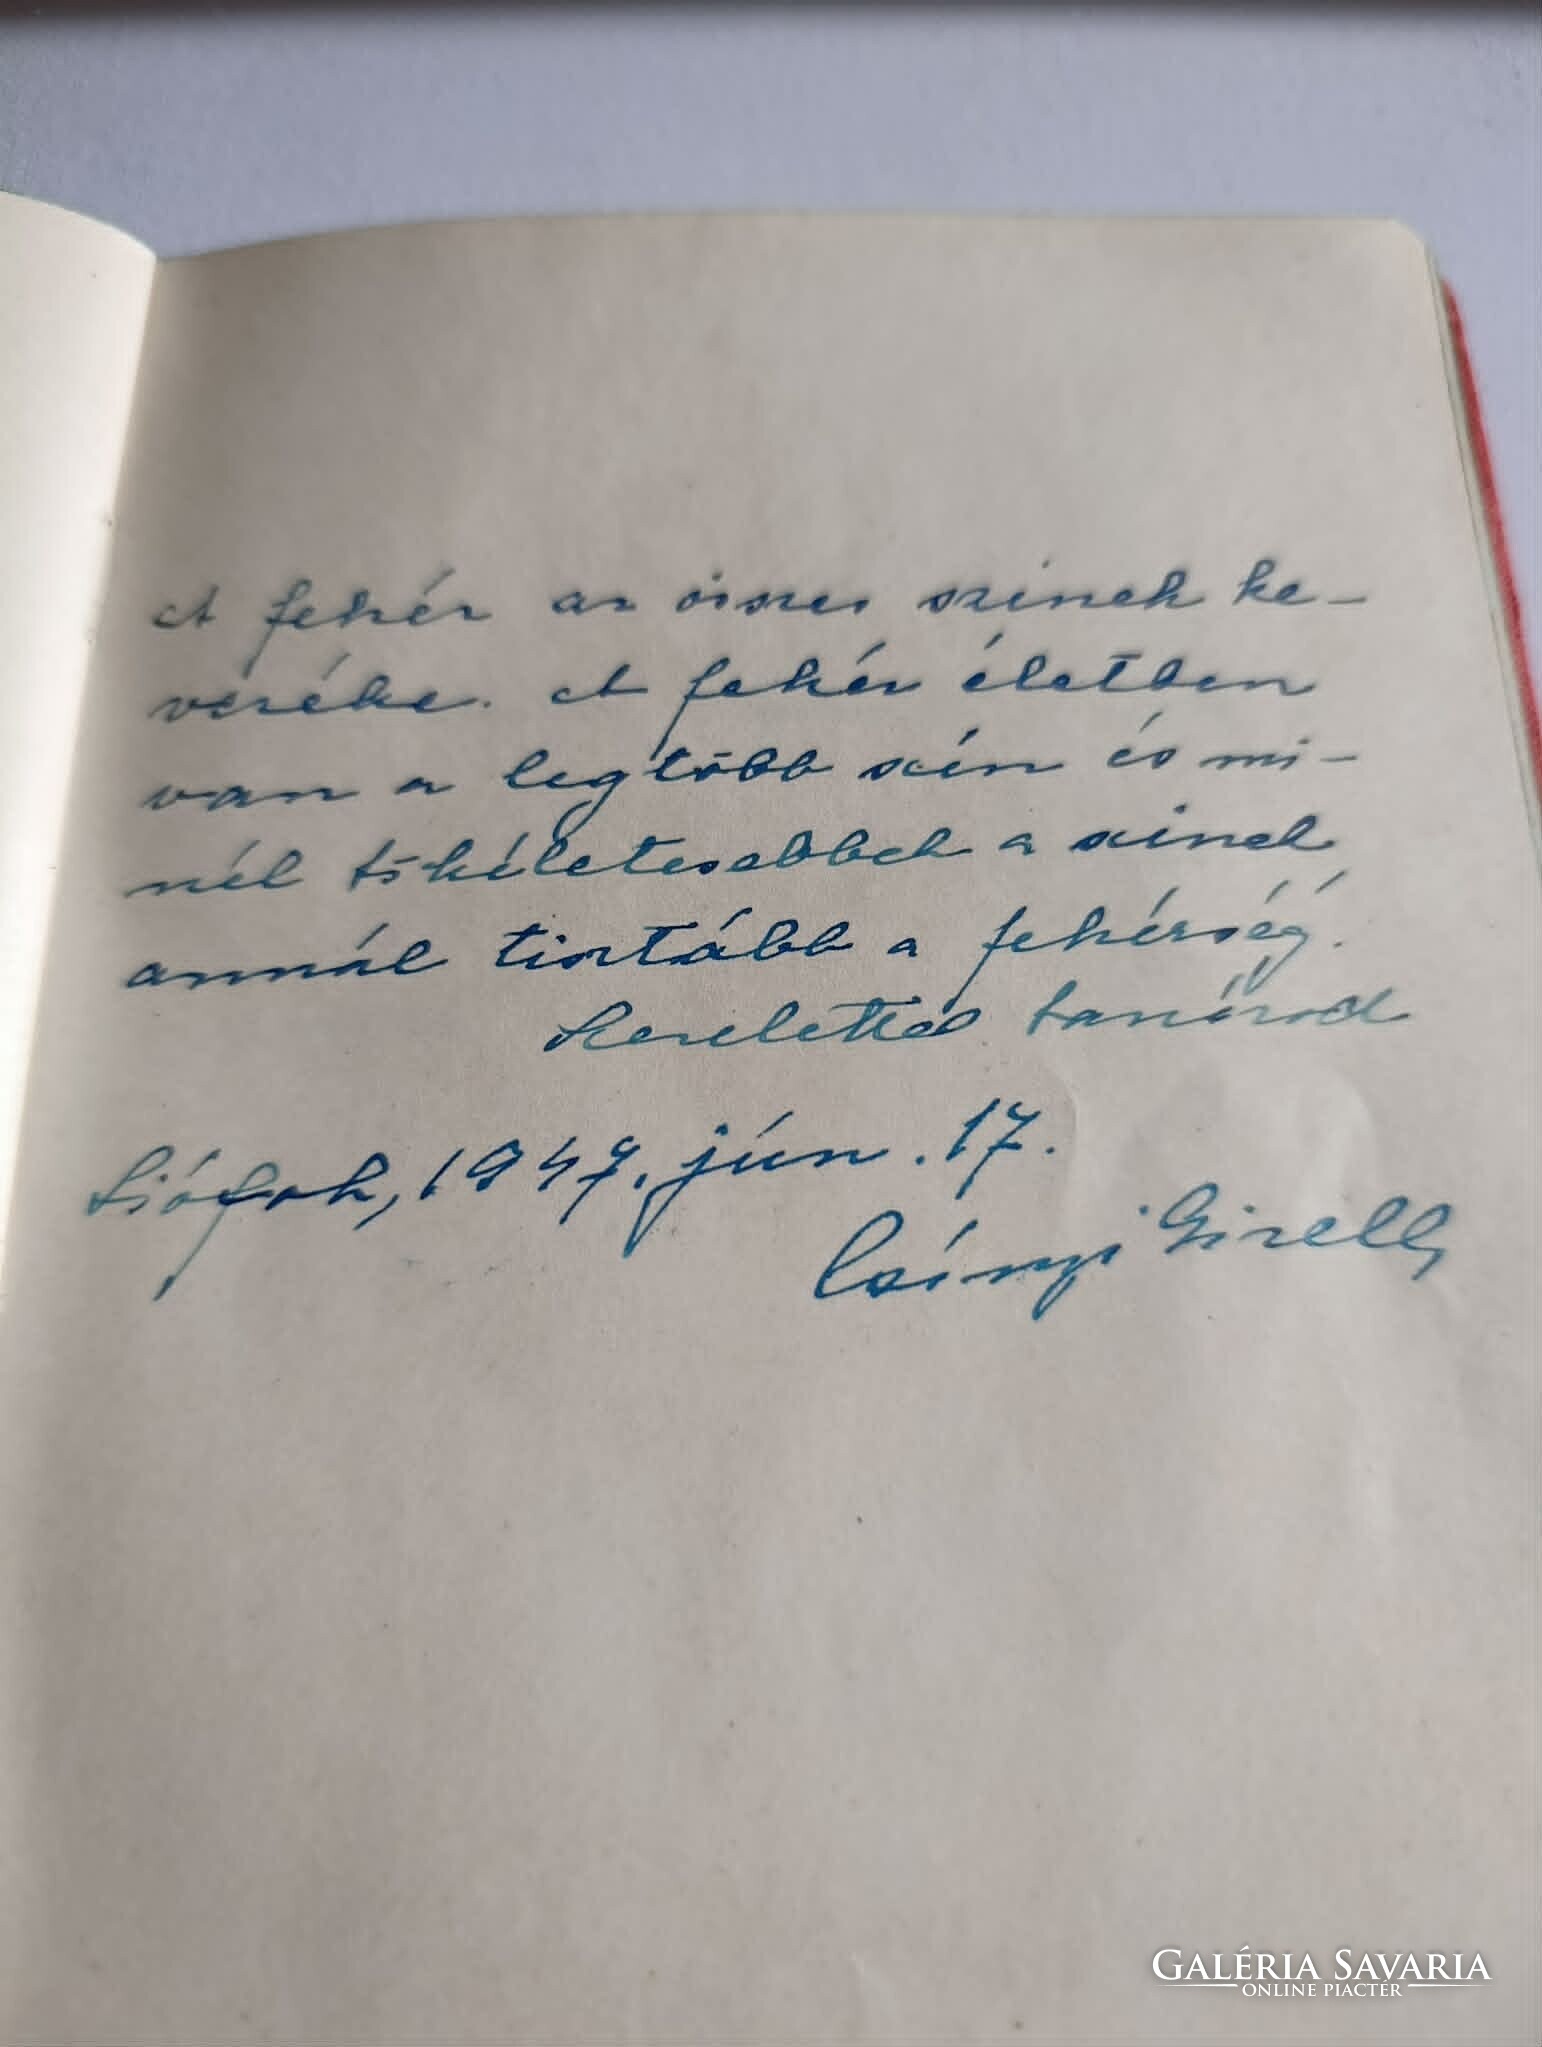 A fehér az összes szinek ke-
veréke. A fehér életben
van a legtöbb szén és mi-
nél tökéletesebbek a szinek
annál tisztább a fehérség.
Szeretettel tanárod
Siófok, 1947. jún. 17.
Csányi Gizella
GALÉRIA SAVARIA
ONLINE PIACTÉR